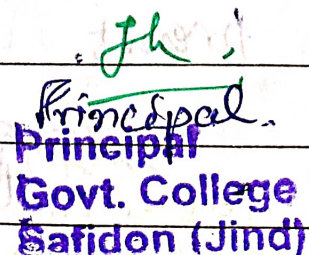 Principal.
Principal
Govt. College
Safidon (Jind)